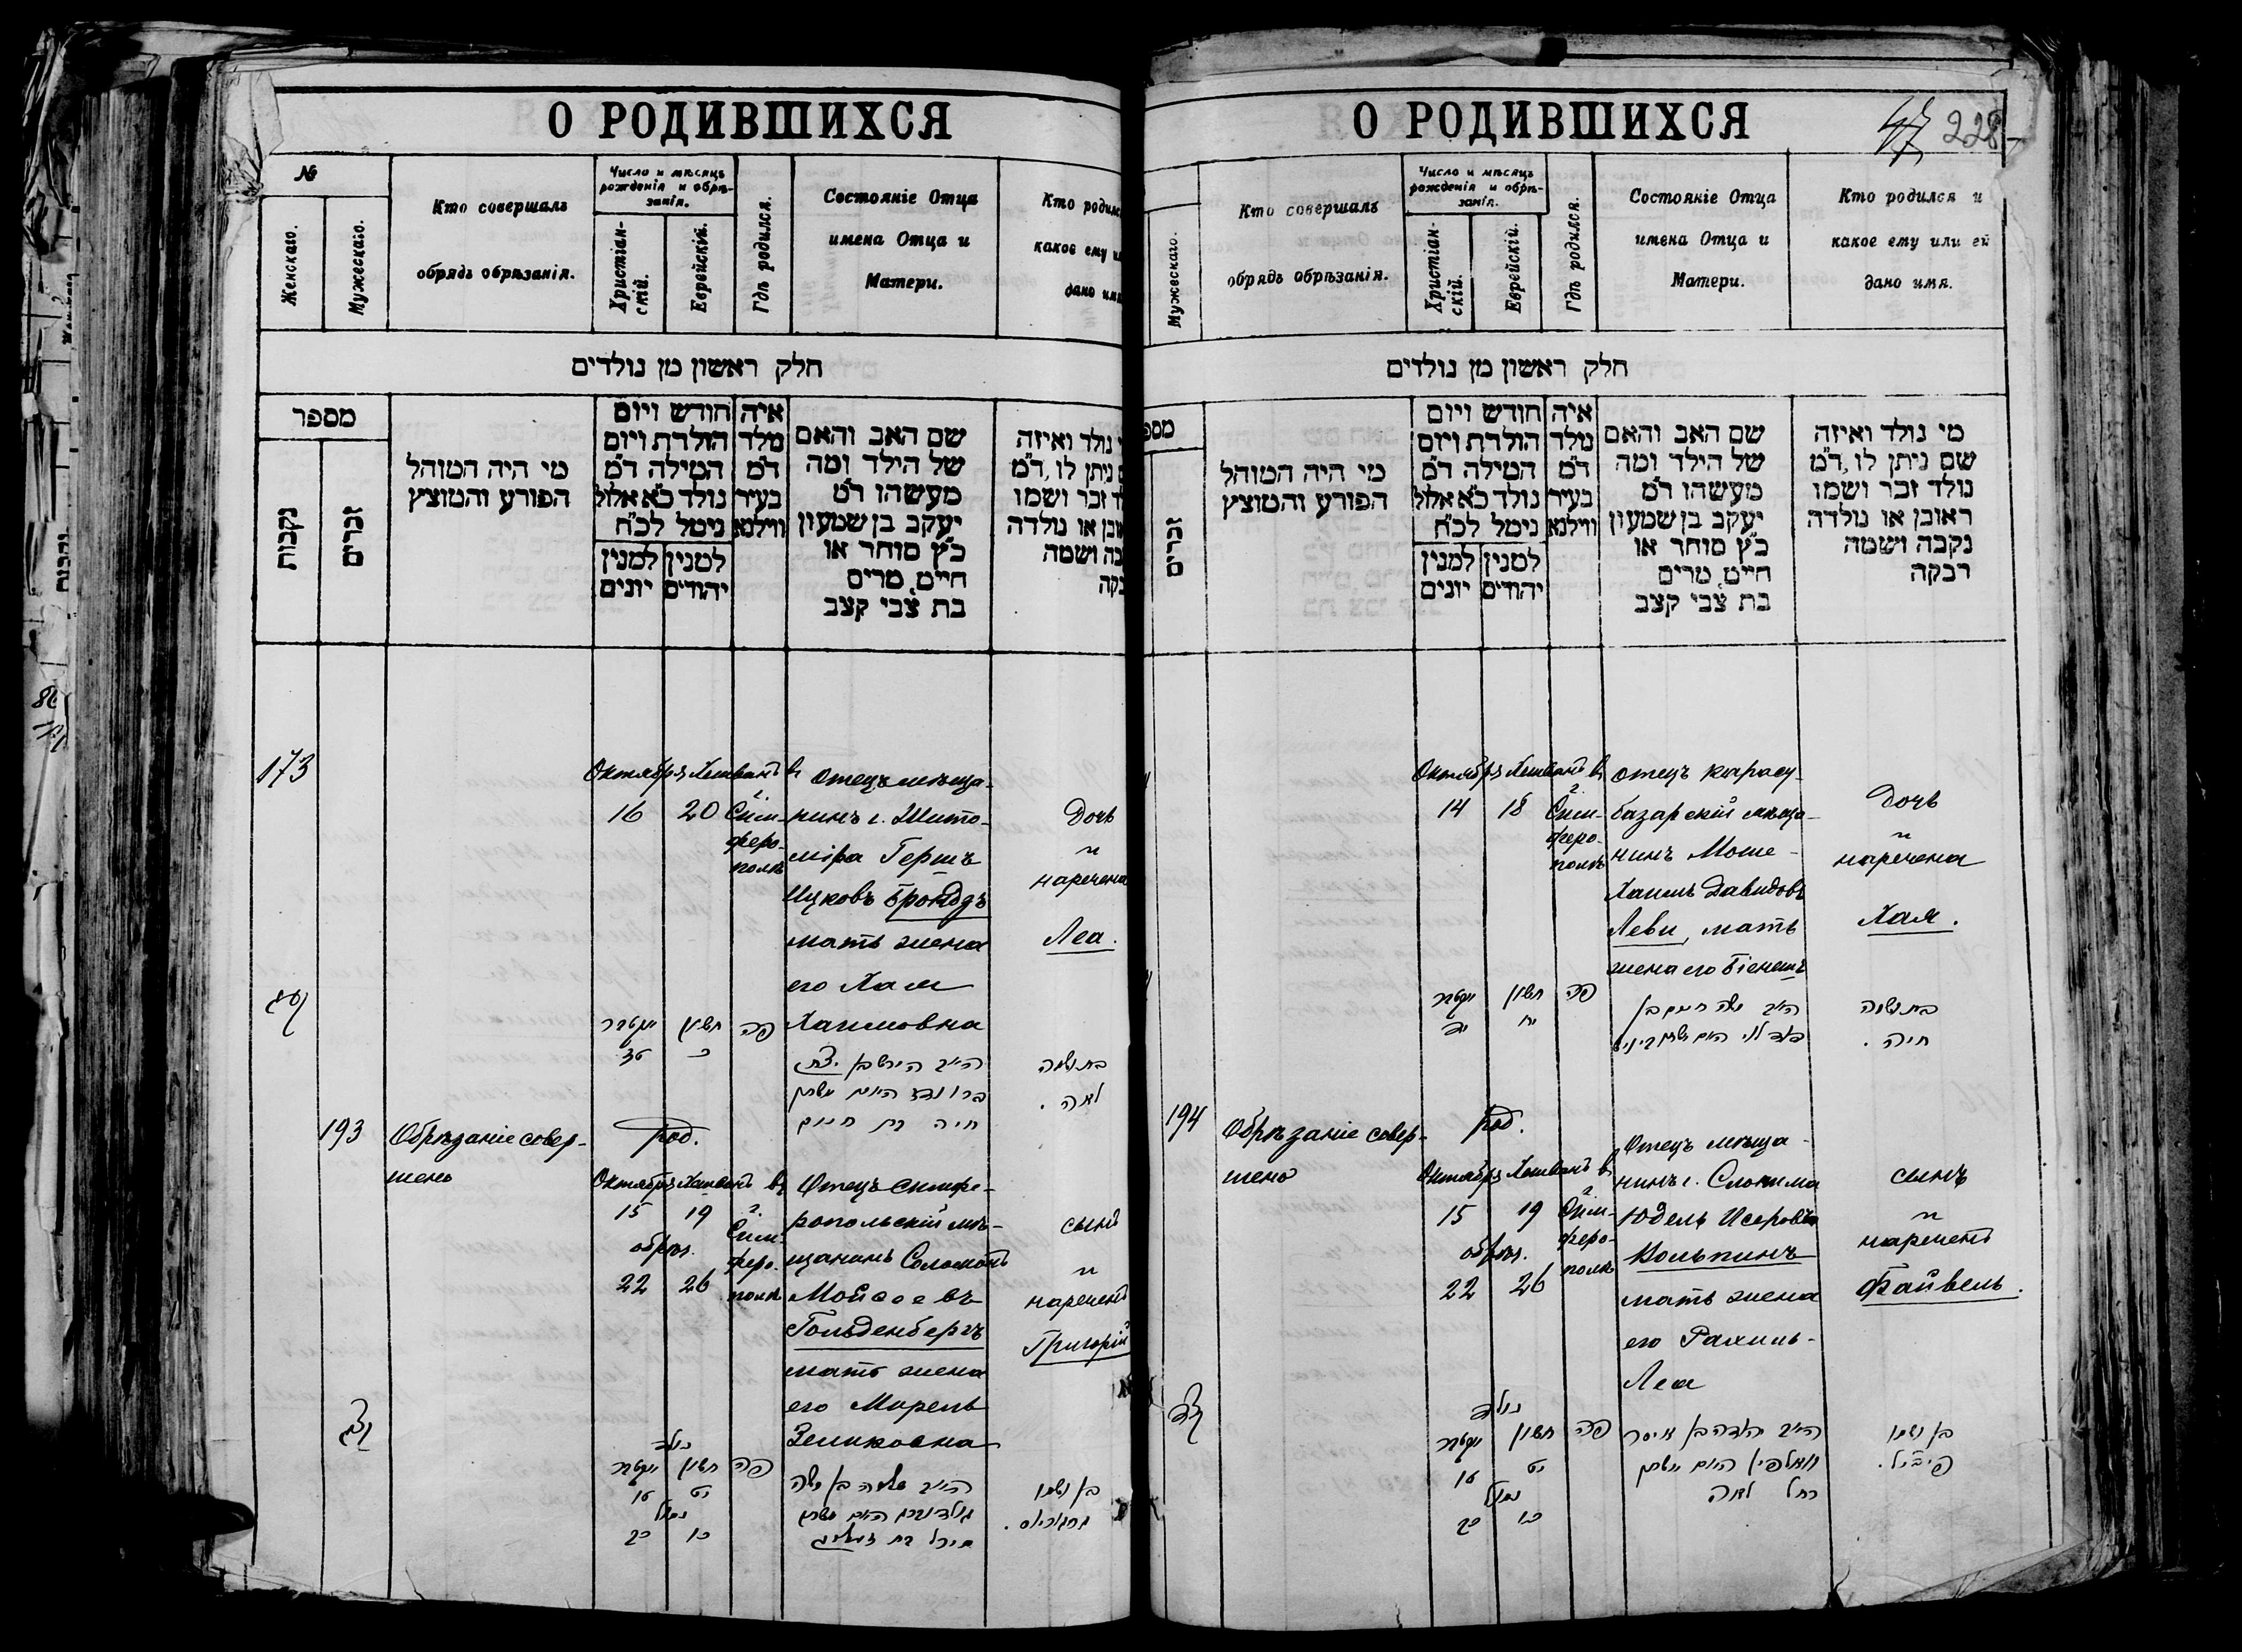 О РОДИВШИХСЯ
№
Женскаго.
Мужескаго.
Кто совершалъ
обрядъ обрѣзанія.
Число и мѣсяцъ
рожденія и обрѣ-
занія.
Христіан-
скій.
Еврейскій.
Гдѣ родился.
Состояніе Отца
имена Отца и
Матери.
Кто родилс
какое ему и
дано имя
חלק ראשון מן נולדים
מספר
נקבות
זכרים
מי היה המוהל
הפורע והמוצץ
חודש ויום
הולדת ויום
המילה ד״מ
נולד כ״א אלול
נימל לכ״ח
למנין יונים
למנין יהודים
איה
נולד
ד״מ
בעיר
ווילנא
שם האב והאם
של הילד ומה
מעשהו ד״מ
יעקב בן שמעון
כ״ץ סוחר או
חייט, מרים
בת צבי קצב
נולד ואיזה
ניתן לו, ד״מ
זכר ושמו
או נולדה
ושמה
173
Октября Хешванъ въ
16 20
г. Сим-
феро-
полѣ
Отецъ мѣща-
нинъ г. Жито-
міра Гершъ
Ицковъ Бройдъ
мать жена
его Хая
Хаимовна
Дочь
и
наречена
Леа.
פה
חשון
כ
בת ושמה
לאה.
חיה בת חיים
193
Обрѣзаніе совер-
шено
род.
Октября Хешванъ въ
15 19
обрѣз.
22 26
г.
Сим-
феро-
полѣ
Отецъ симфе-
ропольскій мѣ-
щанинъ Соломонъ
Мойсеевъ
Гольденбергъ
мать жена
его Мирель
Зеликовна
сынъ
и
нареченъ
Григорій
נולד
חשון
פה
יט
טו
נימול
כו
כב
בן ושמו
О РОДИВШИХСЯ
47 228
Мужескаго.
Кто совершалъ
обрядъ обрѣзанія.
Число и мѣсяцъ
рожденія и обрѣ-
занія.
Христіан-
скій.
Еврейскій.
Гдѣ родился.
Состояніе Отца
имена Отца и
Матери.
Кто родился и
какое ему или ей
дано имя.
חלק ראשון מן נולדים
זכרים
מי היה המוהל
הפורע והמוצץ
חודש ויום
הולדת ויום
המילה ד״מ
נולד כ״א אלול
נימל לכ״ח
למנין יונים
למנין יהודים
איה
נולד
ד״מ
בעיר
ווילנא
שם האב והאם
של הילד ומה
מעשהו ד״מ
יעקב בן שמעון
כ״ץ סוחר או
חייט, מרים
בת צבי קצב
מי נולד ואיזה
שם ניתן לו, ד״מ
נולד זכר ושמו
ראובן או נולדה
נקבה ושמה
רבקה
Октября Хешванъ въ
14 18
г.
Сим-
феро-
полѣ
отецъ карасу-
базарскій мѣща-
нинъ Моше-
Хаимъ Давидовъ
Леви, мать
жена его Біенешъ
Дочь
и
наречена
Хая.
חשון
פה
יח
יד
בת ושמה
חיה.
194
Обрѣзаніе совер-
шено
род.
Октября Хешванъ въ
15 19
обрѣз.
22 26
г.
Сим-
феро-
полѣ
Отецъ мѣща-
нинъ г. Слонима
Юдель Исеровъ
Вольпинъ
мать жена
его Рахиль-
Леа
сынъ
и
нареченъ
Файвель.
נולד
חשון
פה
יט
טו
נימול
כו
כב
רחל לאה
בן ושמו